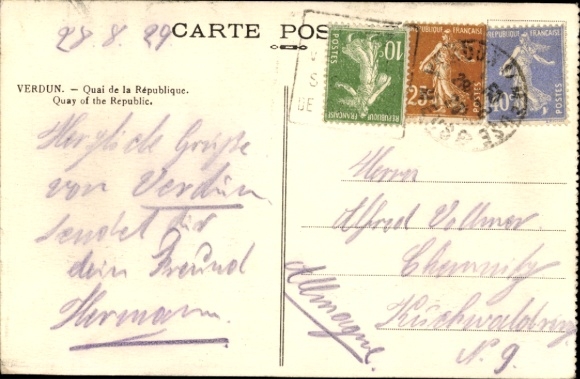 28.8.29
CARTE POS
VERDUN. – Quai de la République.
Quay of the Republic.
Herzliche Grüße
von Verdun
sendet dir
dein Freund
Hermann.
REPUBLIQUE FRANÇAISE
POSTES
10c
REPUBLIQUE FRANÇAISE
POSTES
25c
REPUBLIQUE FRANÇAISE
POSTES
40c
Herrn
Alfred Vollmer
Chemnitz
Küchwaldring
N. 9.
Allemagne.